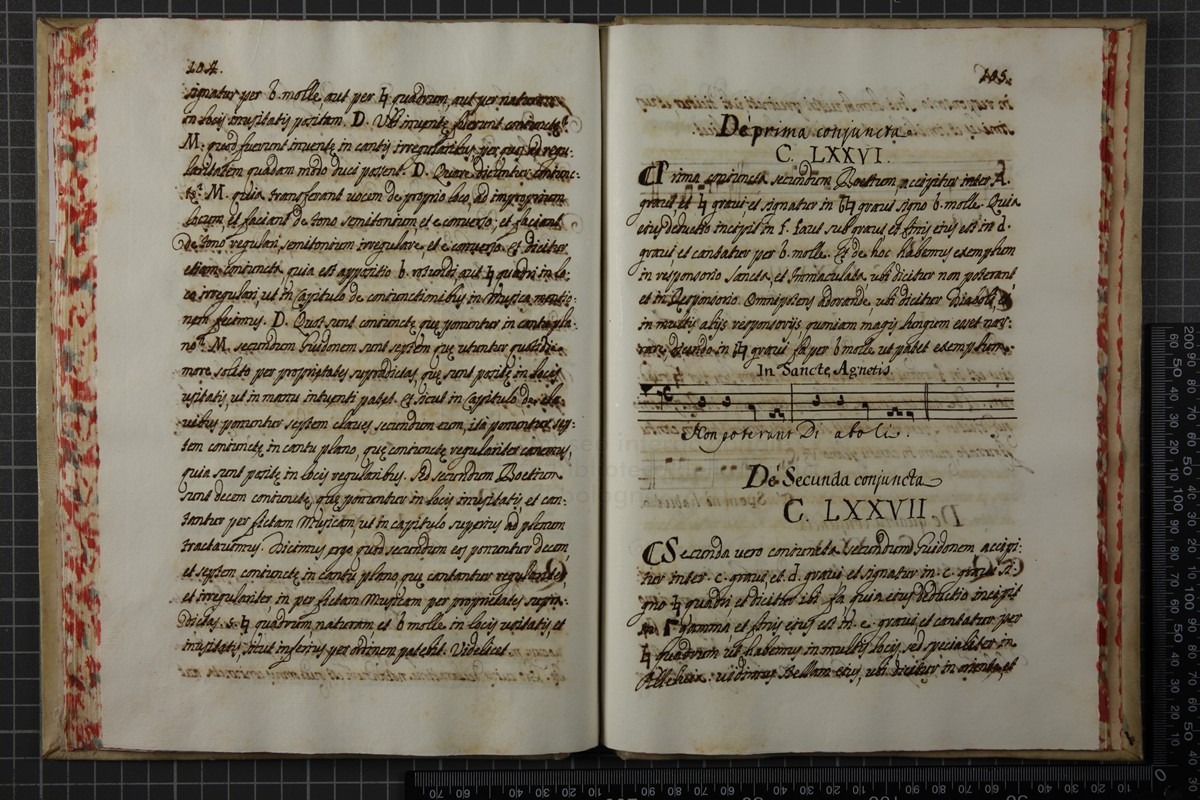 104.
signatur per b. molle aut per ♮ quadrum, aut per naturam
in locis inusitatis positam. D. Ubi inventę fuerunt coniunctę?
M. quod fuerunt inventę in cantis irregularibus, per quas ad regu-
laritatem quadam modo duci possent. D. Quare dicuntur coniunc-
tę? M. quia transferant vocem de proprio loco, ad improprium
locum, et faciant de tono semitonium, et e converso; et faciant
de tono regulari, semitonium irregulare et e converso. Et dicitur
etiam coniuncta quia est appositio b. rotundi aut ♮ quadri in lo-
co irregulari, ut in Capitulo de coniunctionibus in Musica mentio-
nem fecimus. D. Quot sunt coniunctę quę ponuntur in cantu pla-
no? M. secundum Guidonem sunt septem quę utuntur
more solito per proprietates supradictas, quę sunt positę in locis
usitatis, ut in manu intuenti patet. Et sicut in Capitulo de cla-
vibus ponuntur septem claves secundum eum, ita ponuntur sep-
tem coniunctę in cantu plano, quę coniunctę regulariter canimus,
quia sunt positę in locis regularibus. Sed secundum Boetium
sunt decem coniunctę, quę ponuntur in locis inusitatis et can-
tantur per fictam Musicam, ut in capitulo superius ad plenum
tractavimus. Dicimus ergo, quod secundum eos ponuntur decem
et septem coniunctę in cantu plano quę cantantur regulariter,
et irregulariter, in per fictam Musicam per proprietates supra-
dictas. s. ♮ quadrum, naturam et b molle in locis usitatis, et
inusitatis, sicut inferius per ordinem patebit. Videlicet.
105.
De prima conjuncta
C. LXXVI.
Prima coniuncta secundum Boetium accipitur inter A.
gravis et ♮ gravis et signatur in ♮ gravis signo b. molle. Quia
eius deductio incipit in F. faut sub gravis et finis eius est in d.
gravis et cantatur per b. molle. Et de hoc habemus exemplum
in responsorio Sancta, et Immaculata, ubi dicitur non poterant
et in Responsorio. Omnipotens adorande, ubi dicitur Diaboli, et
in multis aliis responsoriis, quoniam magis longum esset nar-
rare, dicendo in ♮ gravis fa per b molle, ut patet exemplum.
In Sanctę Agnetis.
Non poterant Di aboli.
De Secunda conjuncta
C. LXXVII
Secunda vero coniuncta secundum Guidonem accipi-
tur inter. c. gravis, et. d. gravis et signatur in. c. gravis si-
gno ♮ quadri et dicitur ibi fa. Quia eius deductio incipit
in Γ gamma et finis eius est in. e. gravis et cantatur per
♮ quadrum ut habemus in multis locis, sed specialiter in
Alleluia: vidimus Stellam eius, ubi dicitur in oriente, et